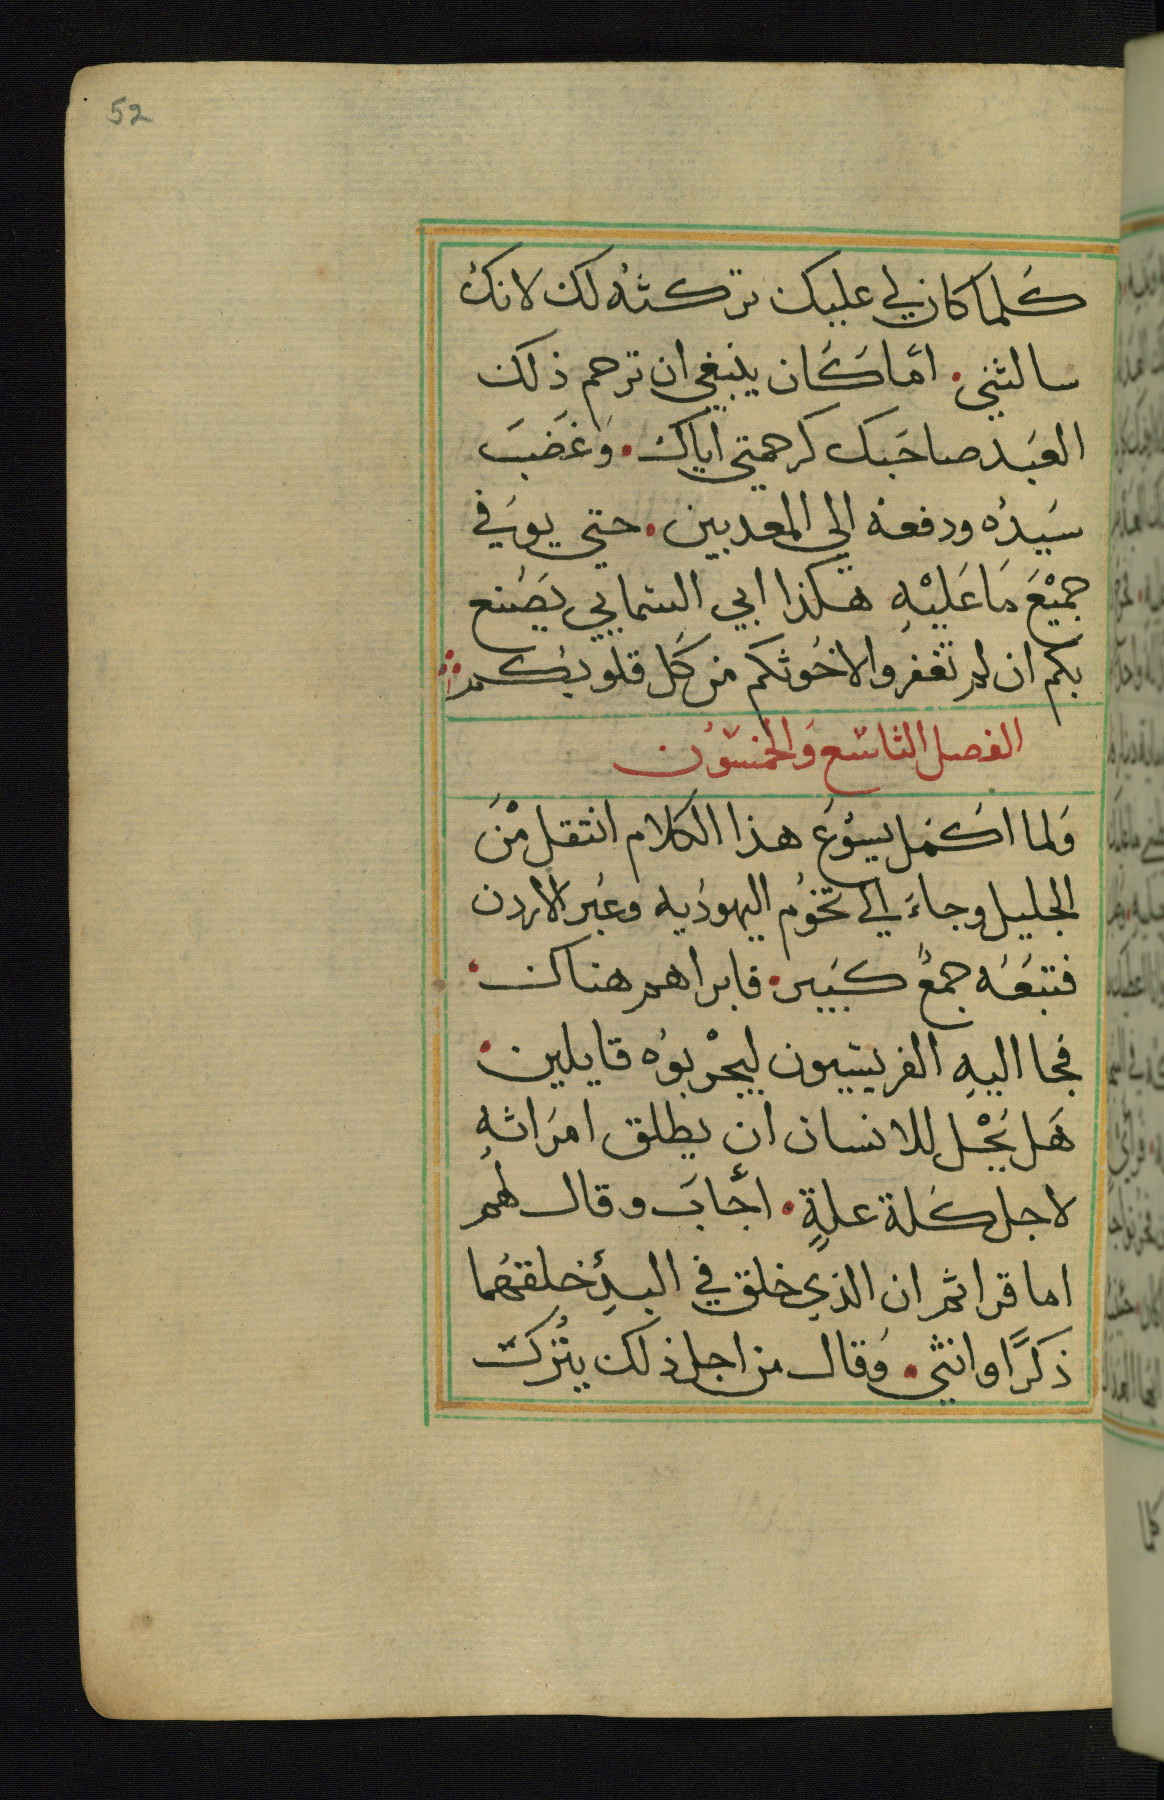 52
كلما كان لي عليك تركثه لك لانك
سالثني. اما كان ينبغي ان ترحم ذلك
العبد صاحبك كرحمتي اياك. وغضب
سيده ودفعه الي المعدبين. حتي يوفي
جميع ما عليه هكذا ابي السمايي يصنع
بكم ان لم تغفروا لاخوثكم من كل قلوبكم
الفصل الثاسع والخمسون
ولما اكمل يسوع هذا الكلام انتقل من
الجليل وجاء الي تخوم اليهوديه وعبر الاردن
فتبعه جمع كبير. فابراهم هناك.
فجا اليه الفريسيون ليجربوه قايلين.
هل يحل للانسان ان يطلق امراثه
لاجل كلة علةٍ. اجاب وقال لهم
اما قراثم ان الذي خلق في البدِئ خلقهما
ذكرًا وانثي. وقال من اجل ذلك يترك
كلما